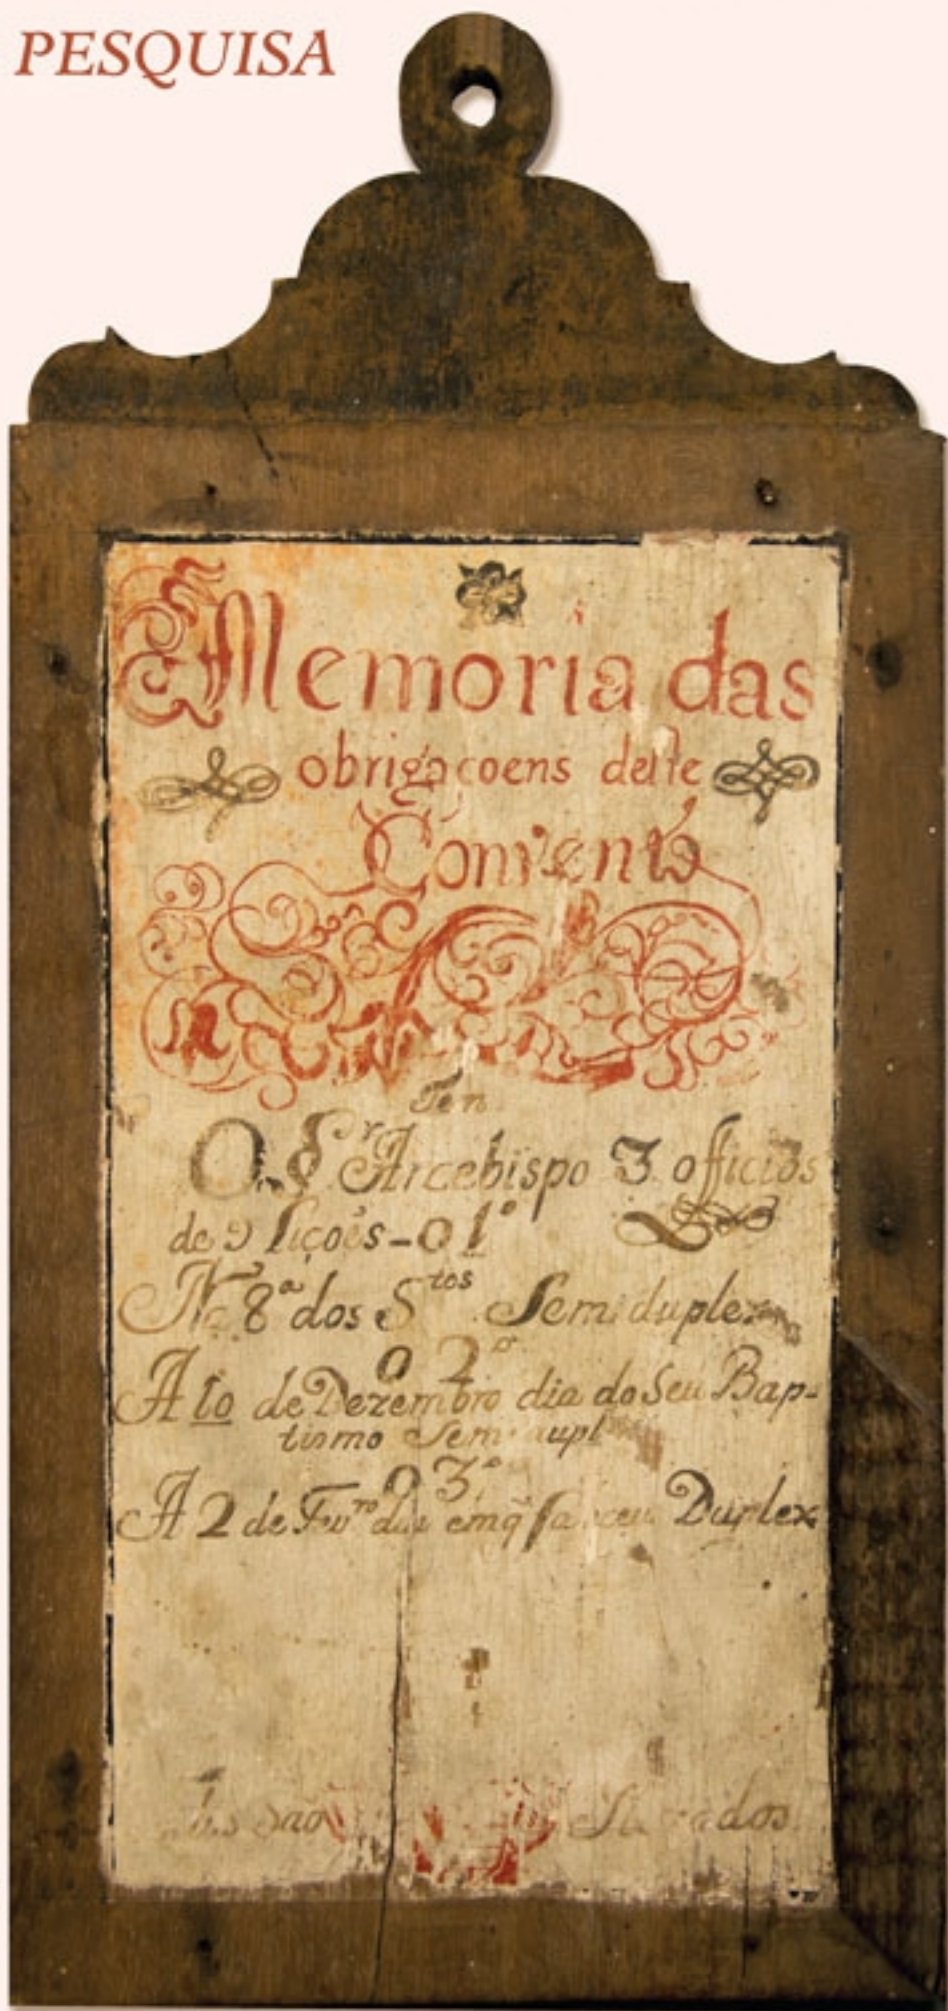 PESQUISA
Memoria das
obrigaçoens deste
Convento
Tem
O. Sr Arcebispo 3 officios
de 9 liçoẽs - o 1º
Na 8ª dos Stos Semiduplex
o 2º
A 10 de Dezembro dia do Seu Bap-
tismo Semidupl
o 3º
A 2 de Fevro dia em q̃ faleceu Duplex